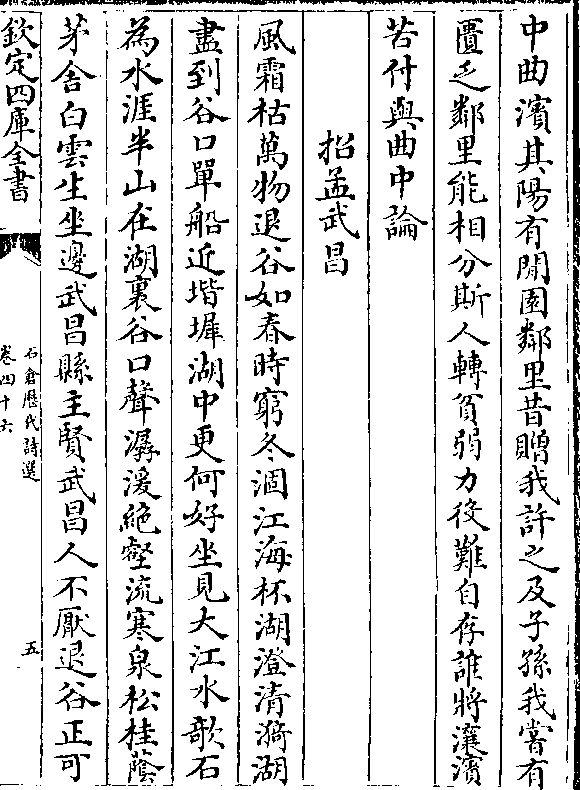 中曲濱其陽有閒園鄰里昔贈我許之及子孫我嘗有
匱乏鄰里能相分斯人轉貧弱力役難自存誰將瀼濱
苦付與曲中論
招孟武昌
風霜枯萬物退谷如春時窮冬涸江海杯湖澄清漪湖
盡到谷口單船近堦墀湖中更何好坐見大江水欹石
為水涯半山在湖裏谷口聲潺湲絶壑流寒泉松桂蔭
茅舍白雲生坐邊武昌縣主賢武昌人不厭退谷正可
欽定四庫全書
石倉歷代詩選
卷四十六
五